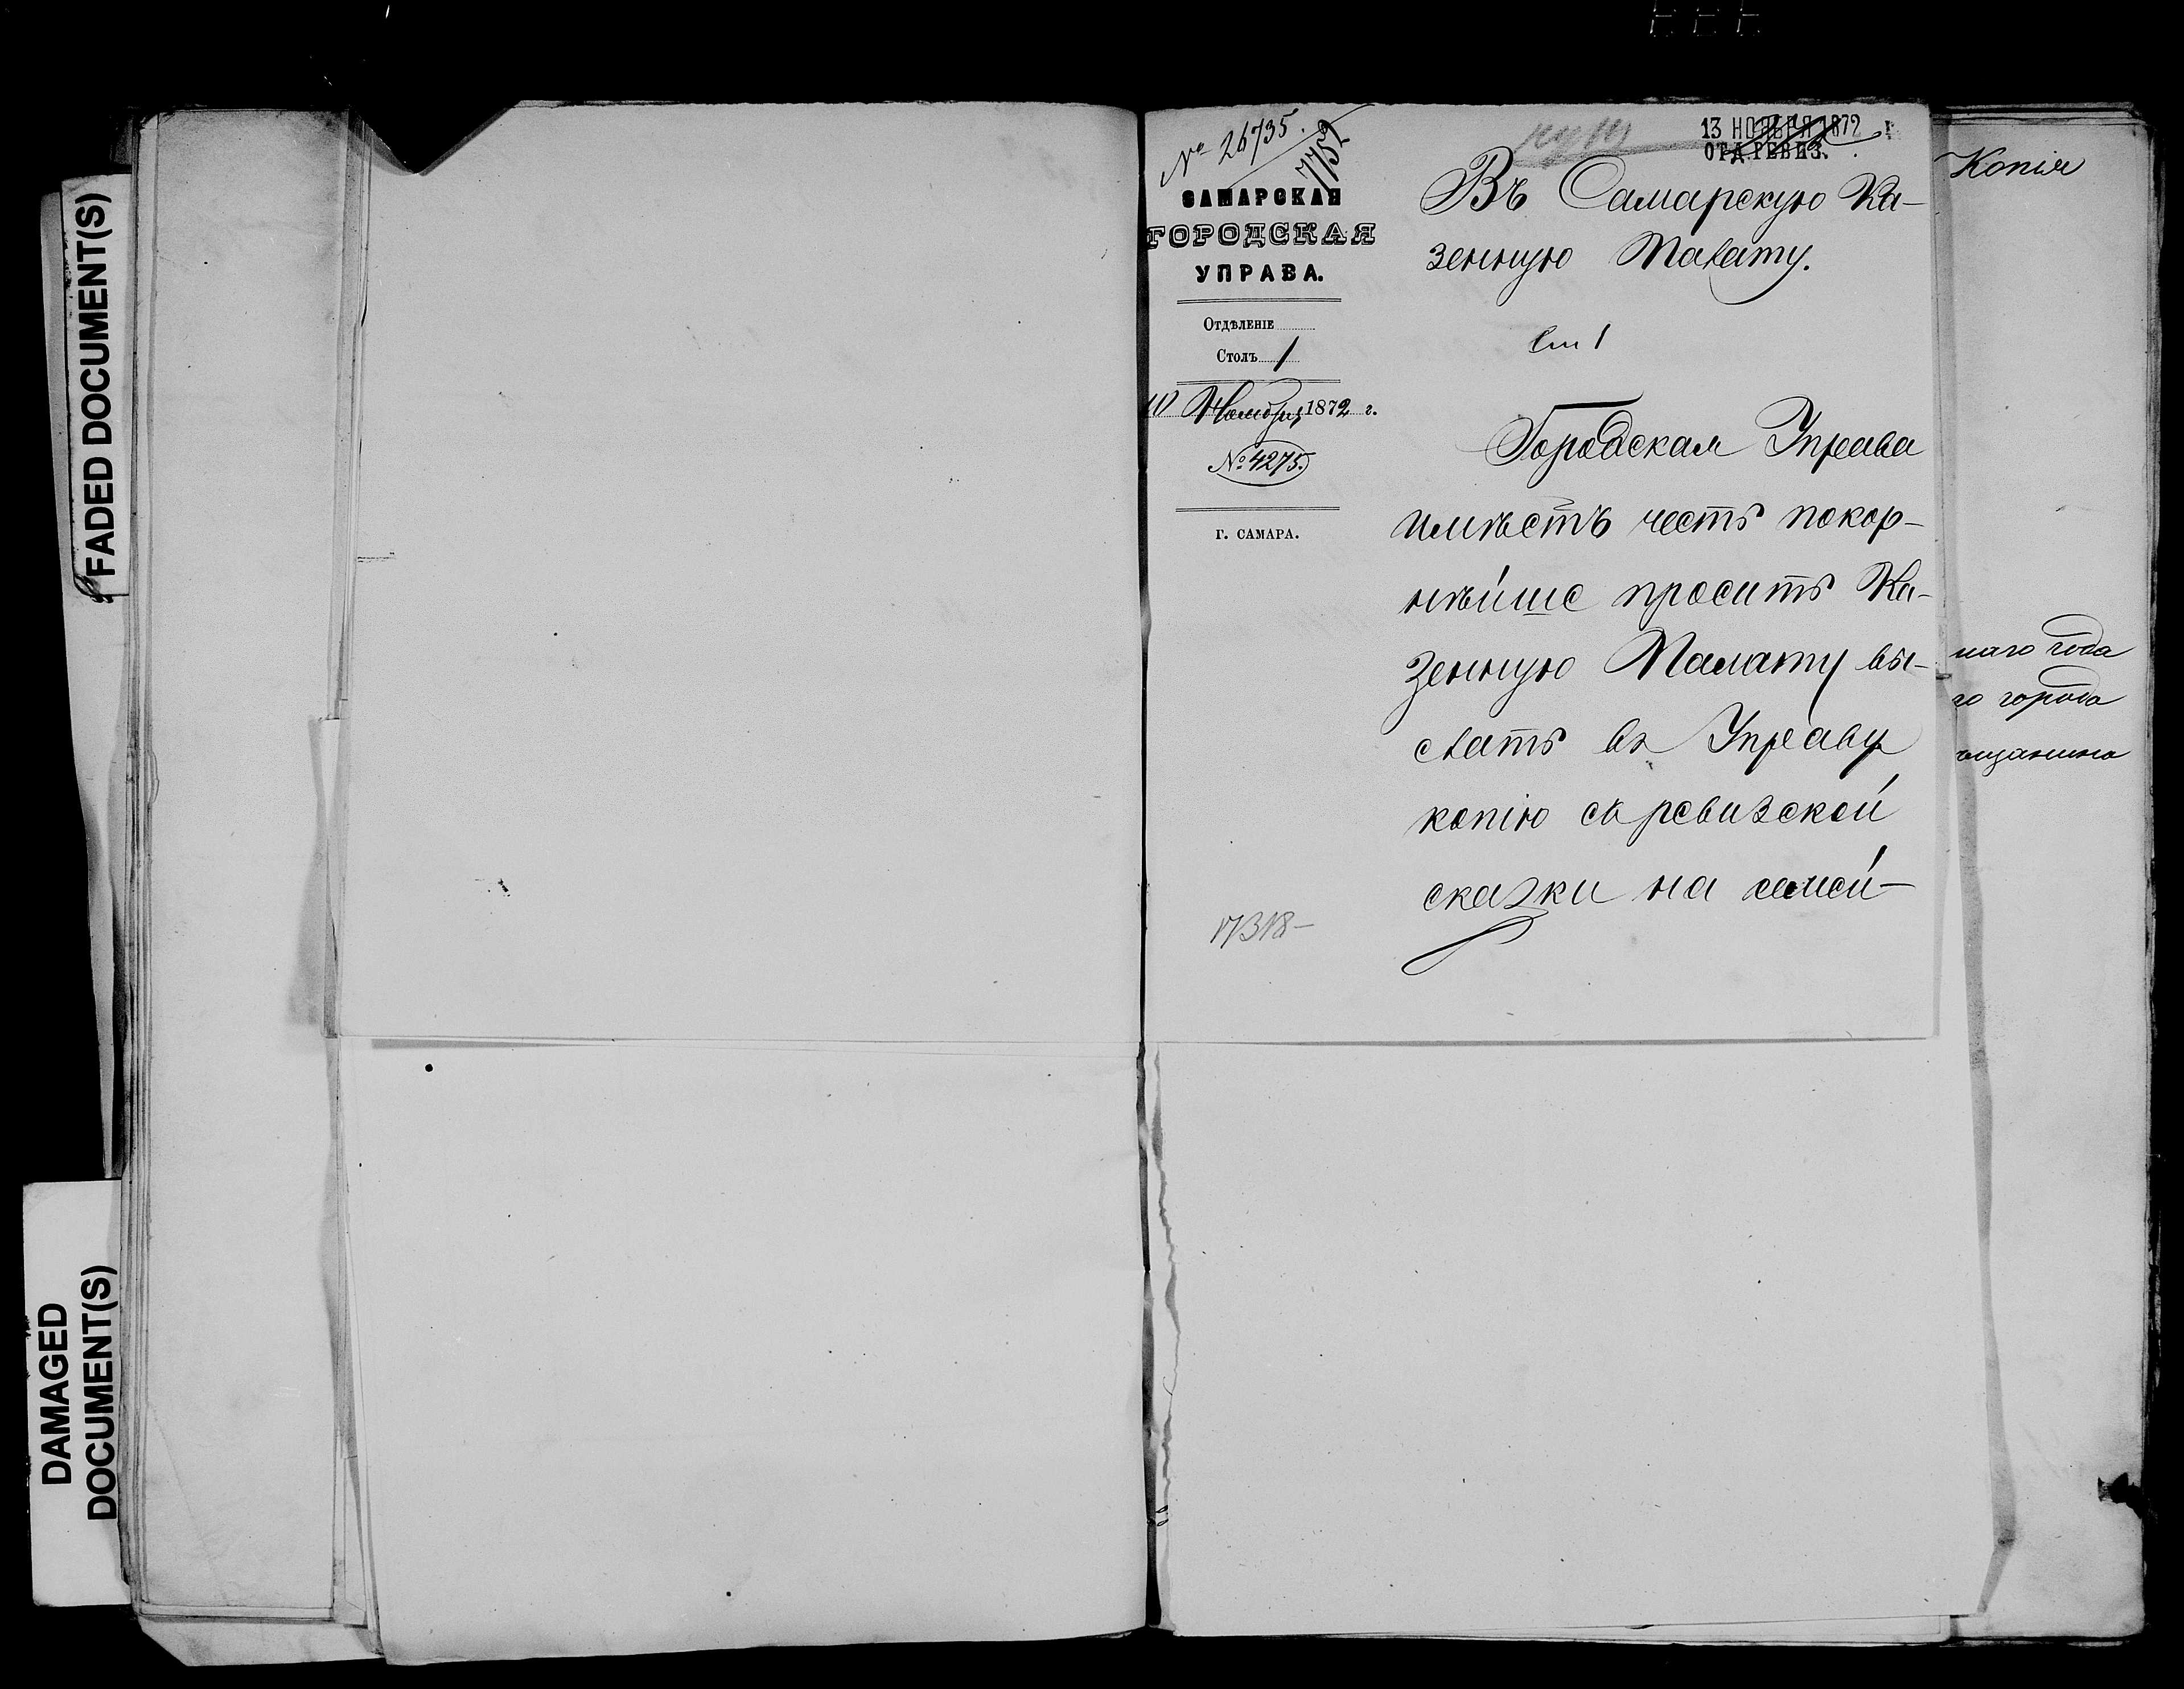 FADED DOCUMENT(S)
DAMAGED
DOCUMENT(S)
№ 26735.
7752
САМАРСКАЯ
ГОРОДСКАЯ
УПРАВА.
Отдѣленіе
Столъ 1
10 Ноября 1872 г.
№ 4275.
Г. САМАРА.
17318-
13 НОЯБРЯ 1872
ОТД. РЕВИЗ.
Въ Самарскую Ка-
зенную Палату.
Ст 1
Городская Управа
имѣетъ честь покор-
нѣйше просить Ка-
зенную Палату вы-
слать въ Управу
копію съ ревизской
сказки на семей-
Копія
наго года
го города
ѣщанина